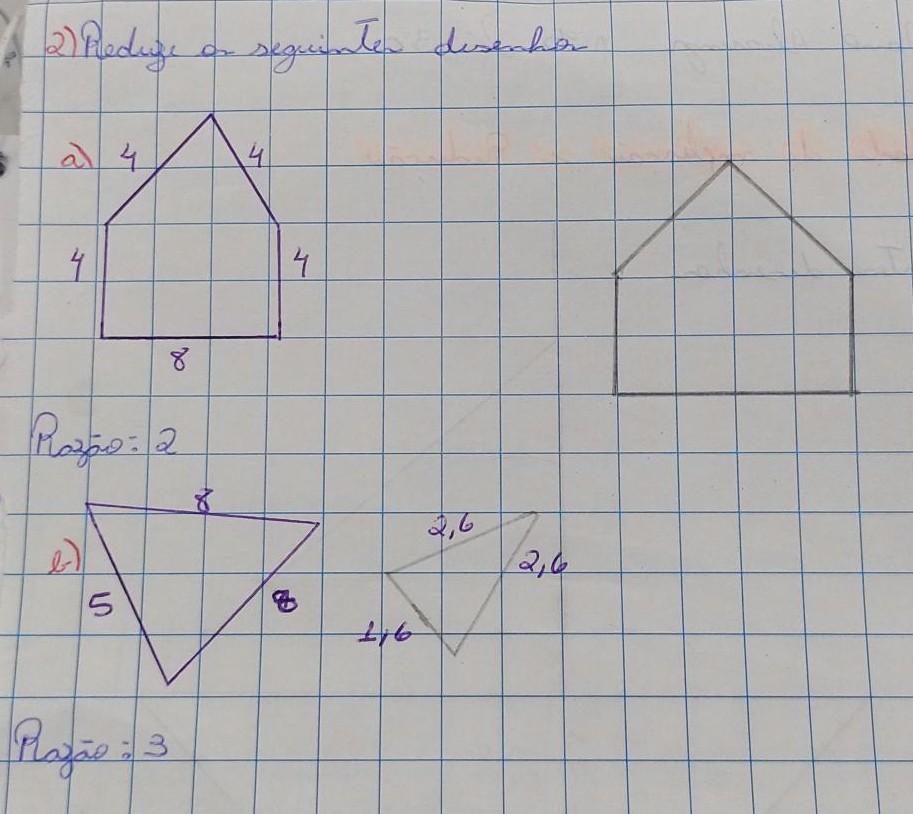 2) Reduze os seguintes desenhos
a) 4 4
4 4
8
Razão: 2
8
b)
5 8
2,6
2,6
1,6
Razão: 3